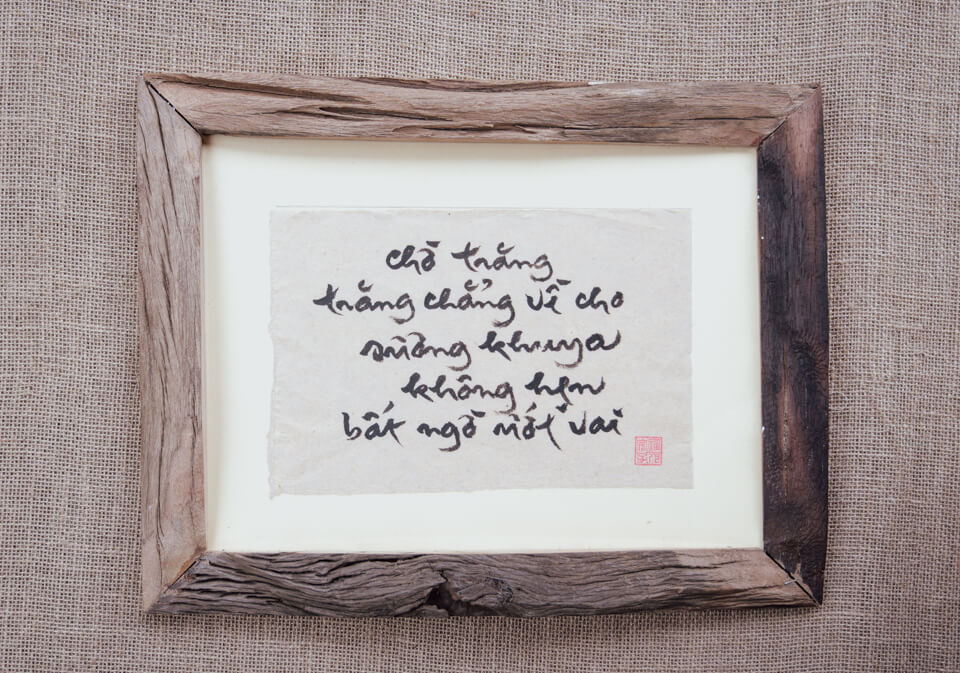 chờ trăng
trăng chẳng về cho
sương khuya
không hẹn
bất ngờ ướt vai